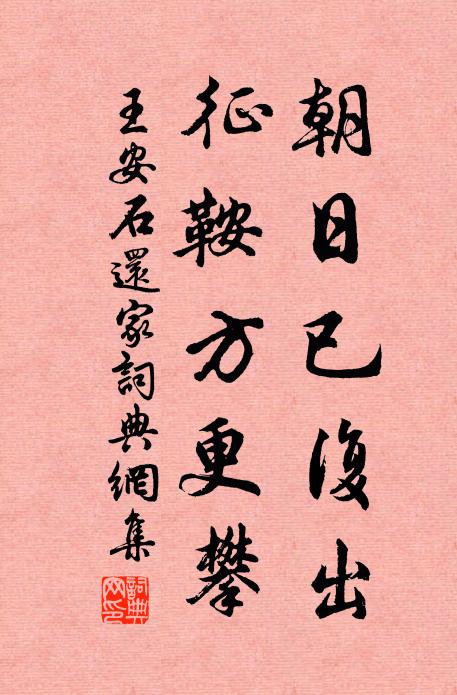 朝日已復出
征鞍方更攀
王安石還家詞典網集
詞典網印